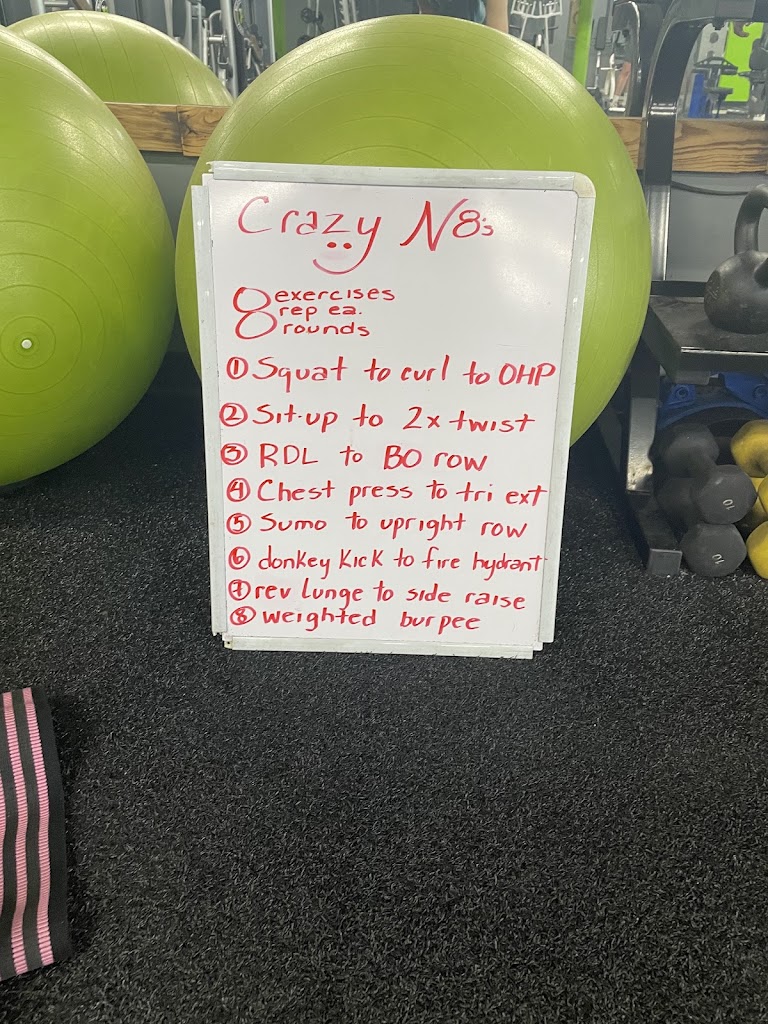 Crazy N8's
8 exercises
8 rep ea.
rounds
① Squat to curl to OHP
② Sit-up to 2x twist
③ RDL to BO row
④ Chest press to tri ext
⑤ Sumo to upright row
⑥ donkey kick to fire hydrant
⑦ rev lunge to side raise
⑧ weighted burpee
10
10